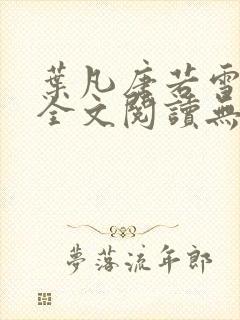 葉凡唐若雪
全文閱讀無
夢落流年郎